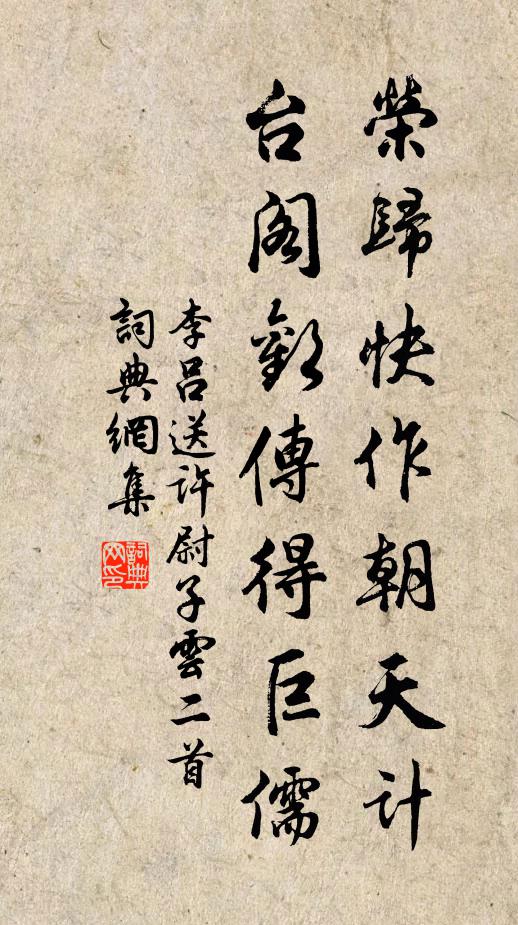 榮歸快作朝天計
台閣歡傳得巨儒
李呂送許尉子雲二首
詞典網集
詞典網印